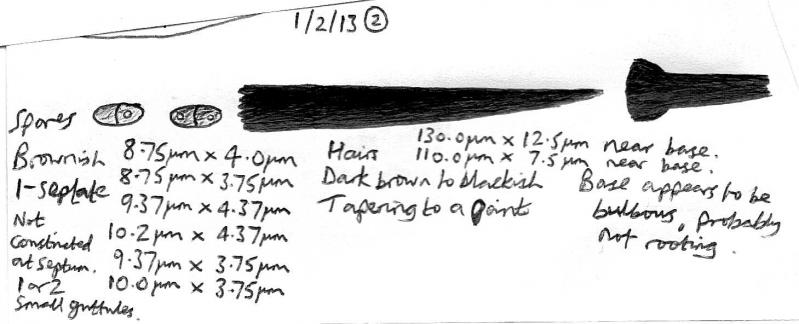 1/2/13 2
Spores
Brownish
1-septate
Not
constricted
at septum.
1 or 2
small guttules.
8.75µm x 4.0µm
8.75µm x 3.75µm
9.37µm x 4.37µm
10.2µm x 4.37µm
9.37µm x 3.75µm
10.0µm x 3.75µm
Hairs 130.0µm x 12.5µm near base.
110.0µm x 7.5µm near base.
Dark brown to blackish
Tapering to a point
Base appears to be
bulbous, probably
not rooting.